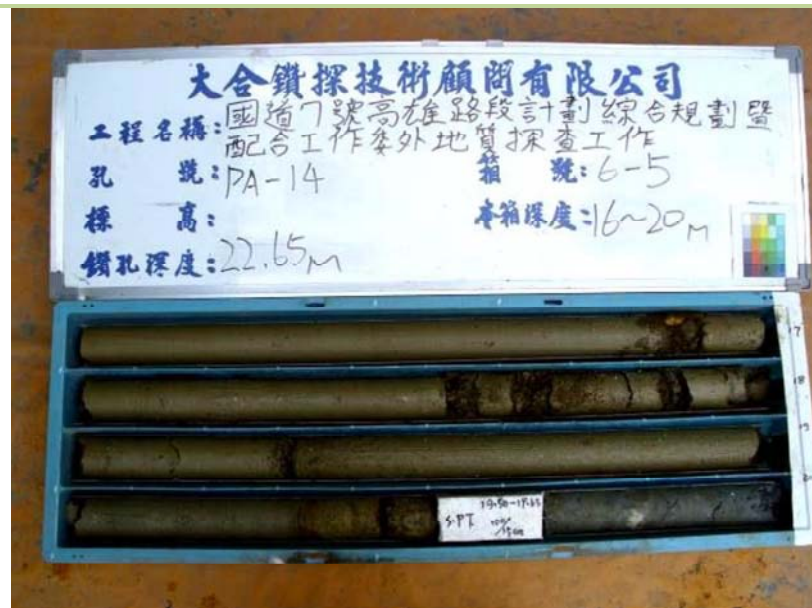 大合鑽探技術顧問有限公司
工程名稱:國道7號高雄路段計劃綜合規劃暨
配合工作委外地質探查工作
孔號:PA-14 箱號:6-5
標高: 本箱深度:16~20M
鑽孔深度:22.65M
17
18
19
S.PT